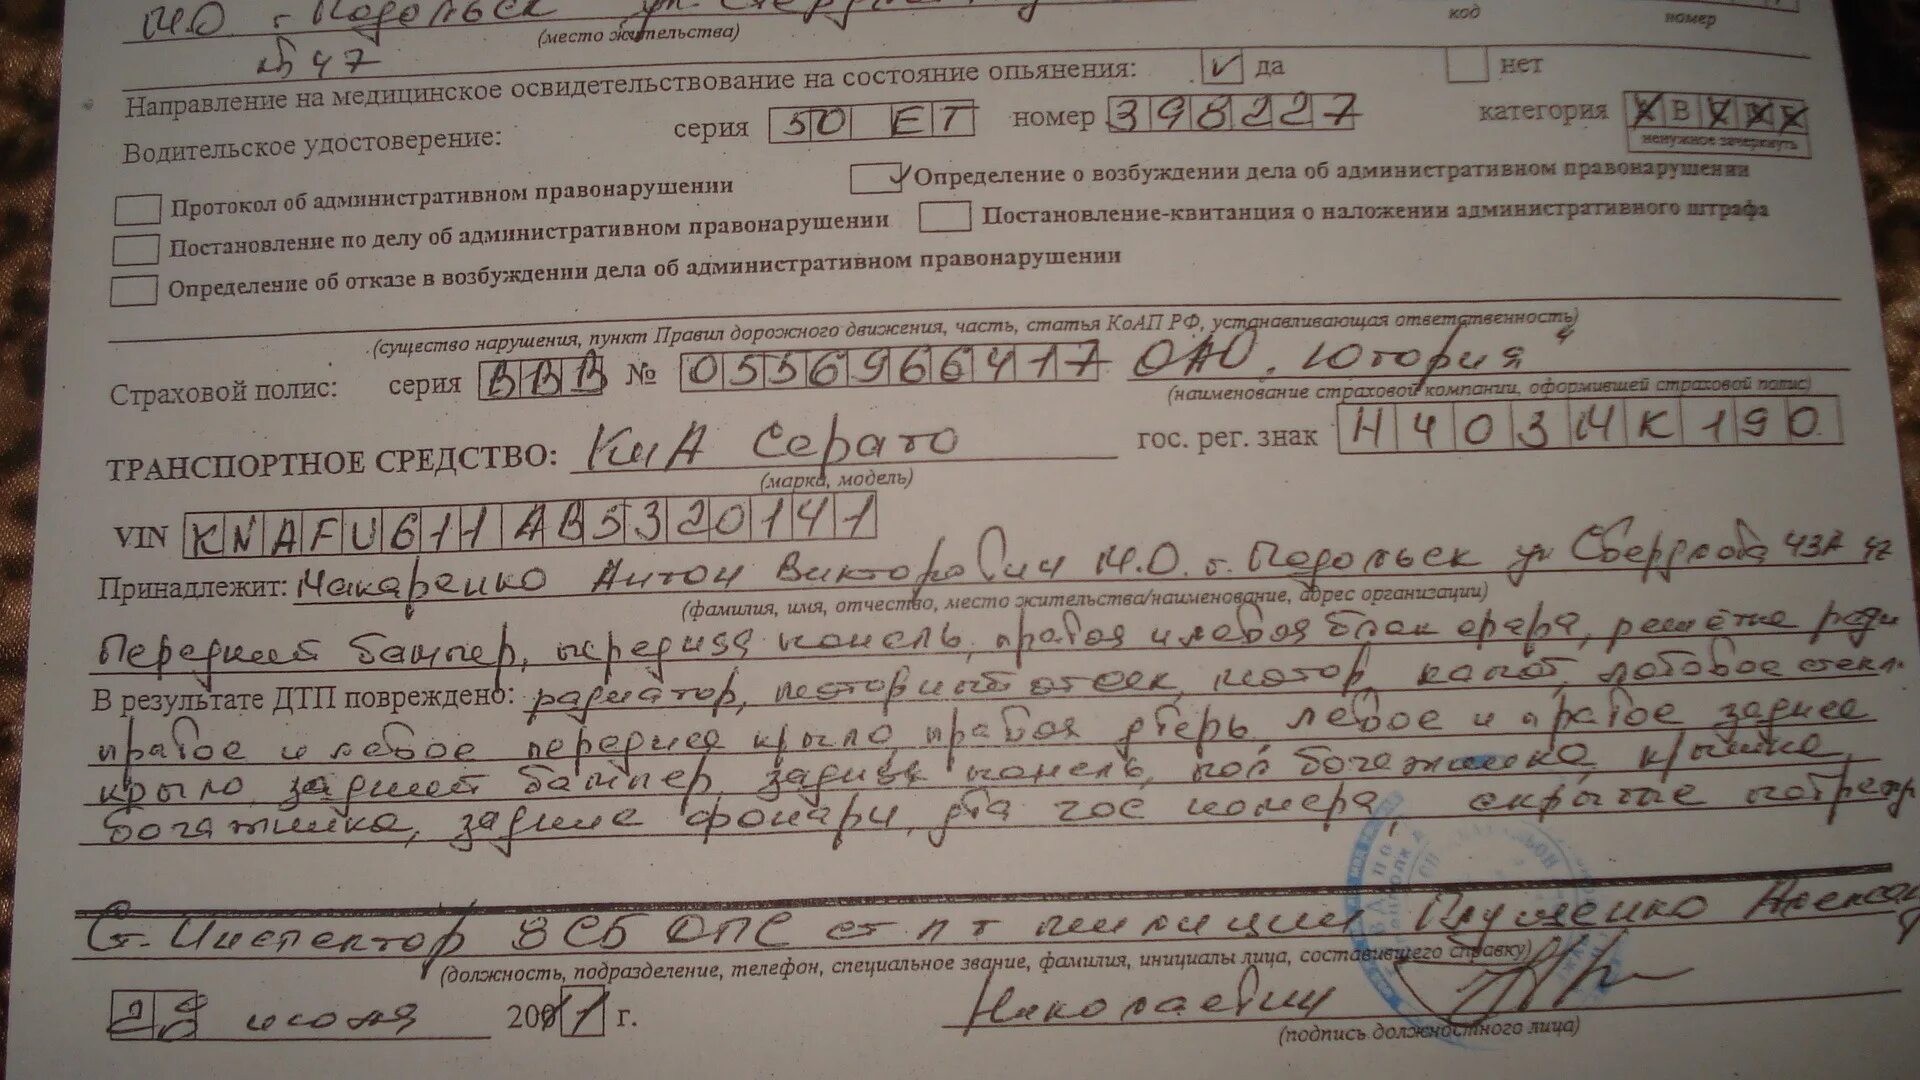 М.О. г. Подольск ул.
(место жительства)
код номер
47
Направление на медицинское освидетельствование на состояние опьянения: да нет
Водительское удостоверение: серия 50 ЕТ номер 398227 категория В
ненужное зачеркнуть
Протокол об административном правонарушении Определение о возбуждении дела об административном правонарушении
Постановление по делу об административном правонарушении Постановление-квитанция о наложении административного штрафа
Определение об отказе в возбуждении дела об административном правонарушении
(существо нарушения, пункт Правил дорожного движения, часть, статья КоАП РФ, устанавливающая ответственность)
Страховой полис: серия ВВВ № 0556966417 ОАО "Югория"
(наименование страховой компании, оформившей страховой полис)
ТРАНСПОРТНОЕ СРЕДСТВО: КиА Серато гос. рег. знак Н403МК190
(марка, модель)
VIN KNAFU611AB5320141
Принадлежит: Макаренко Антон Викторович М.О. г. Подольск ул Свердлова 43А 47
(фамилия, имя, отчество, место жительства/наименование, адрес организации)
Передний бампер, передняя панель, правая и левая блок фара, решётка ради
В результате ДТП повреждено: радиатор, моторный отсек, мотор, капот, лобовое стекл.
правое и левое переднее крыло, правая дверь, левое и правое заднее
крыло, задний бампер, задняя панель, пол багажника, крышка
багажника, задние фонари, два гос номера, скрытые
Ст. Инспектор ДПС ст л-т милиции Глущенко Александ
(должность, подразделение, телефон, специальное звание, фамилия, инициалы лица, составившего справку)
июня 2011 г. Николаевич
(подпись должностного лица)